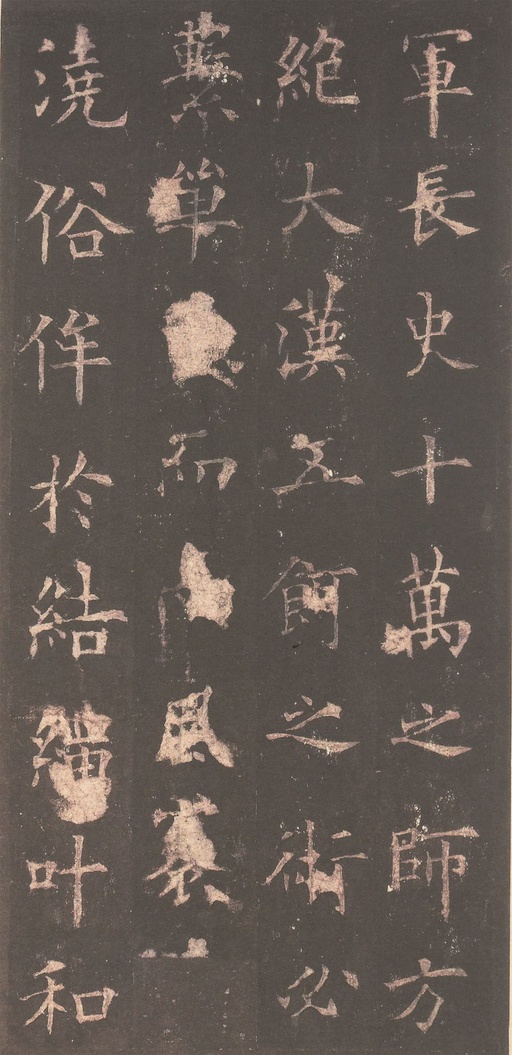 軍長史十萬之師方
絶大漢五餌之術必
單而風
澆俗侔於結繩叶和